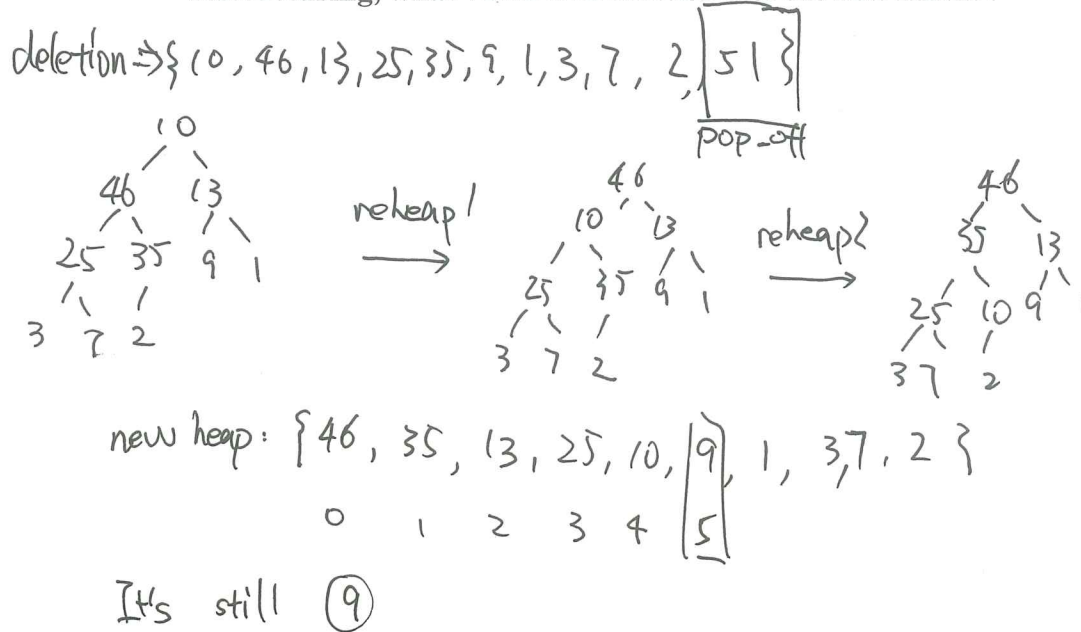 deletion ⇒ { 10, 46, 13, 25, 35, 9, 1, 3, 7, 2, 51 }
pop_off
10
46 13
25 35 9 1
3 7 2
reheap1
46
10 13
25 35 9 1
3 7 2
reheap2
46
35 13
25 10 9
3 7 2
new heap: { 46, 35, 13, 25, 10, 9, 1, 3, 7, 2 }
0 1 2 3 4 5
It's still 9